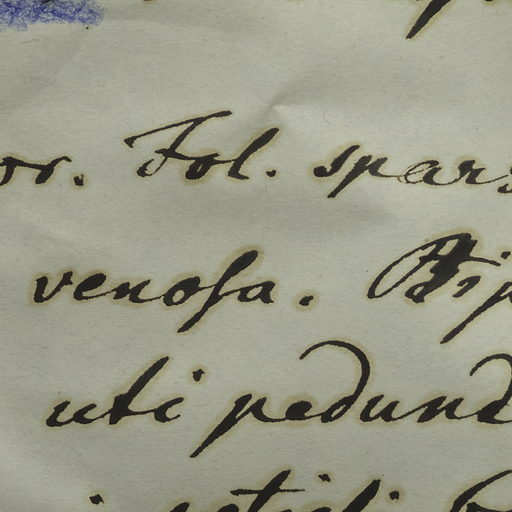 or. Fol. spars
venosa. Stip
uti pedund